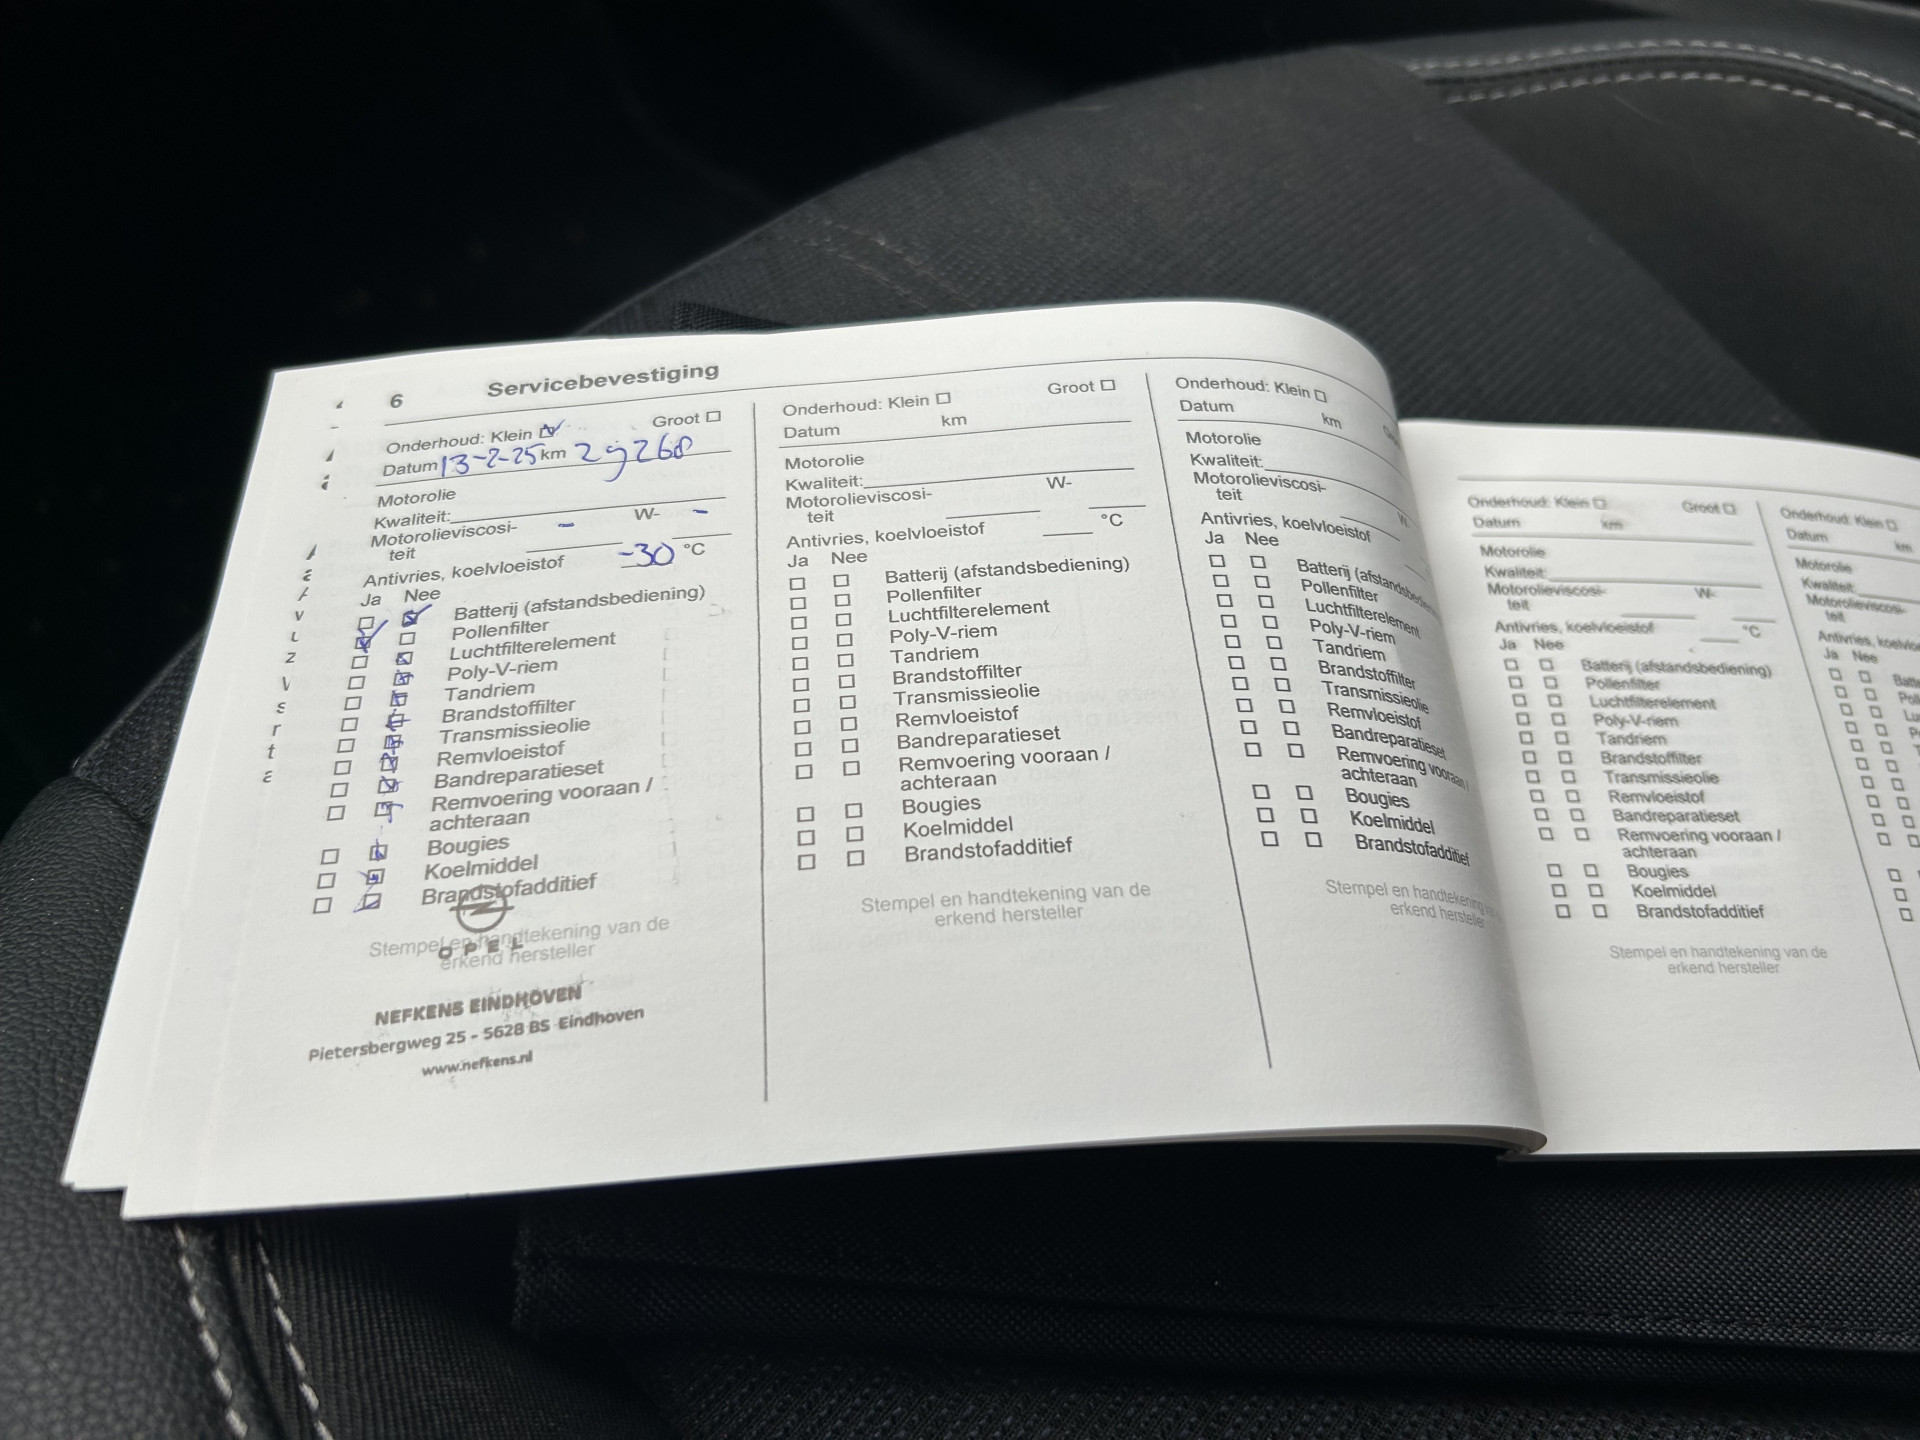 6 Servicebevestiging
Onderhoud: Klein Groot
Datum 13-2-25 km 29268
Motorolie
Kwaliteit:
Motorolieviscosi- - W- -
teit
Antivries, koelvloeistof -30 °C
Ja Nee
Batterij (afstandsbediening)
Pollenfilter
Luchtfilterelement
Poly-V-riem
Tandriem
Brandstoffilter
Transmissieolie
Remvloeistof
Bandreparatieset
Remvoering vooraan /
achteraan
Bougies
Koelmiddel
Brandstofadditief
Stempel en handtekening van de
erkend hersteller
OPEL
NEFKENS EINDHOVEN
Pietersbergweg 25 - 5628 BS Eindhoven
www.nefkens.nl
Onderhoud: Klein Groot
Datum km
Motorolie
Kwaliteit:
Motorolieviscosi- W-
teit
Antivries, koelvloeistof °C
Ja Nee
Batterij (afstandsbediening)
Pollenfilter
Luchtfilterelement
Poly-V-riem
Tandriem
Brandstoffilter
Transmissieolie
Remvloeistof
Bandreparatieset
Remvoering vooraan /
achteraan
Bougies
Koelmiddel
Brandstofadditief
Stempel en handtekening van de
erkend hersteller
Onderhoud: Klein
Datum km
Motorolie
Kwaliteit:
Motorolieviscosi- W-
teit
Antivries, koelvloeistof
Ja Nee
Batterij (afstandsbediening)
Pollenfilter
Luchtfilterelement
Poly-V-riem
Tandriem
Brandstoffilter
Transmissieolie
Remvloeistof
Bandreparatieset
Remvoering vooraan /
achteraan
Bougies
Koelmiddel
Brandstofadditief
Stempel en handtekening
erkend hersteller
Onderhoud: Klein Groot
Datum km
Motorolie
Kwaliteit:
Motorolieviscosi- W-
teit
Antivries, koelvloeistof °C
Ja Nee
Batterij (afstandsbediening)
Pollenfilter
Luchtfilterelement
Poly-V-riem
Tandriem
Brandstoffilter
Transmissieolie
Remvloeistof
Bandreparatieset
Remvoering vooraan /
achteraan
Bougies
Koelmiddel
Brandstofadditief
Stempel en handtekening van de
erkend hersteller
Onderhoud: Klein
Datum km
Motorolie
Kwaliteit:
Motorolieviscosi-
teit
Ja Nee